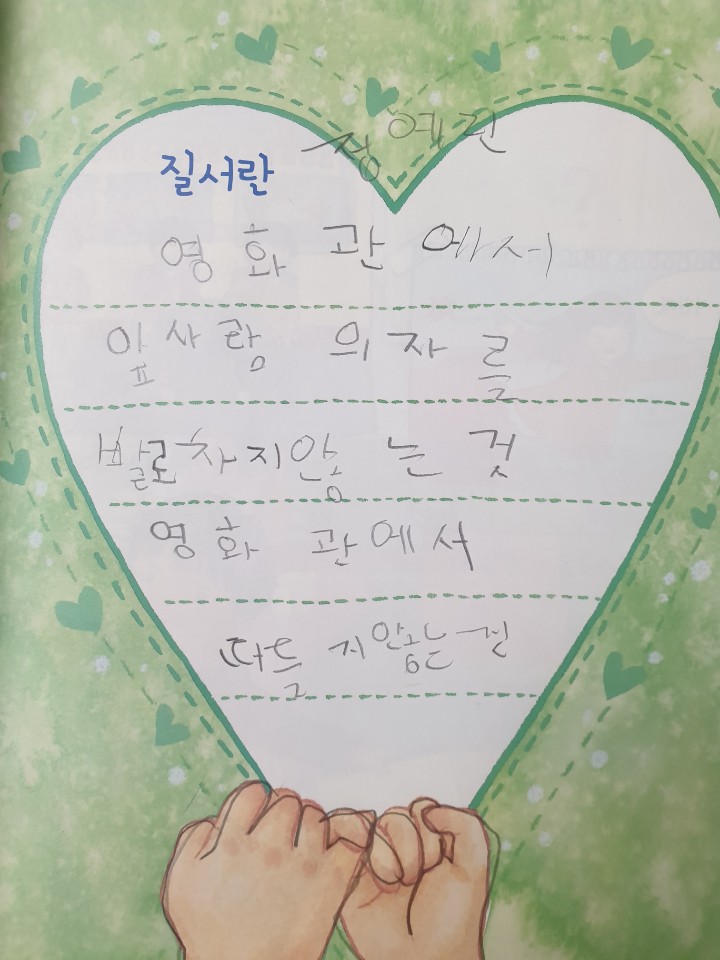 정예린
질서란
영화관에서
앞사람 의자를
발로차지않는것
영화관에서
떠들지않는것